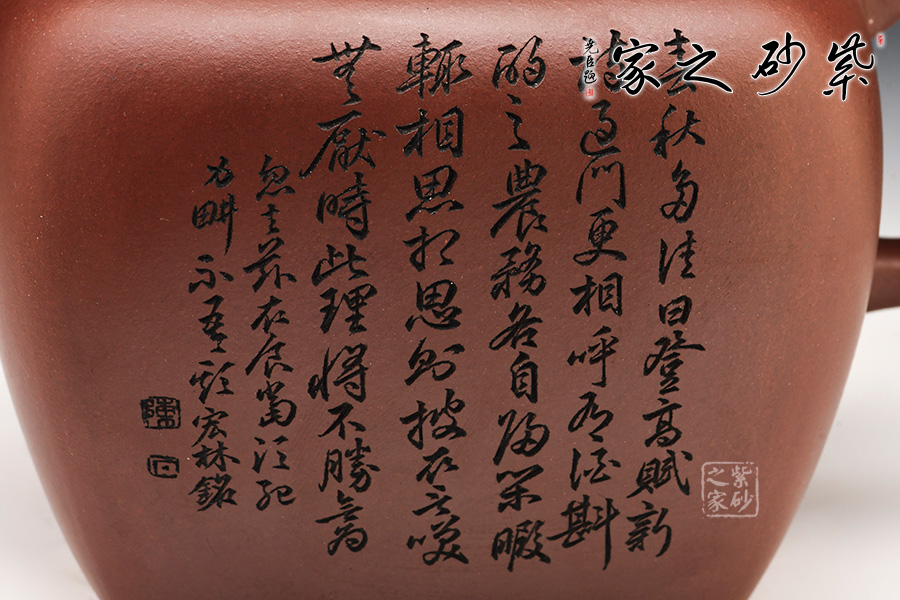 紫砂之家
春秋多佳日登高賦新
詩過門更相呼有酒斟
酌之農務各自歸閑暇
輒相思相思則披衣言笑
無厭時此理將不勝為
忽去茲衣食當須紀
力畊不吾欺宏林銘
陳
紫砂之家